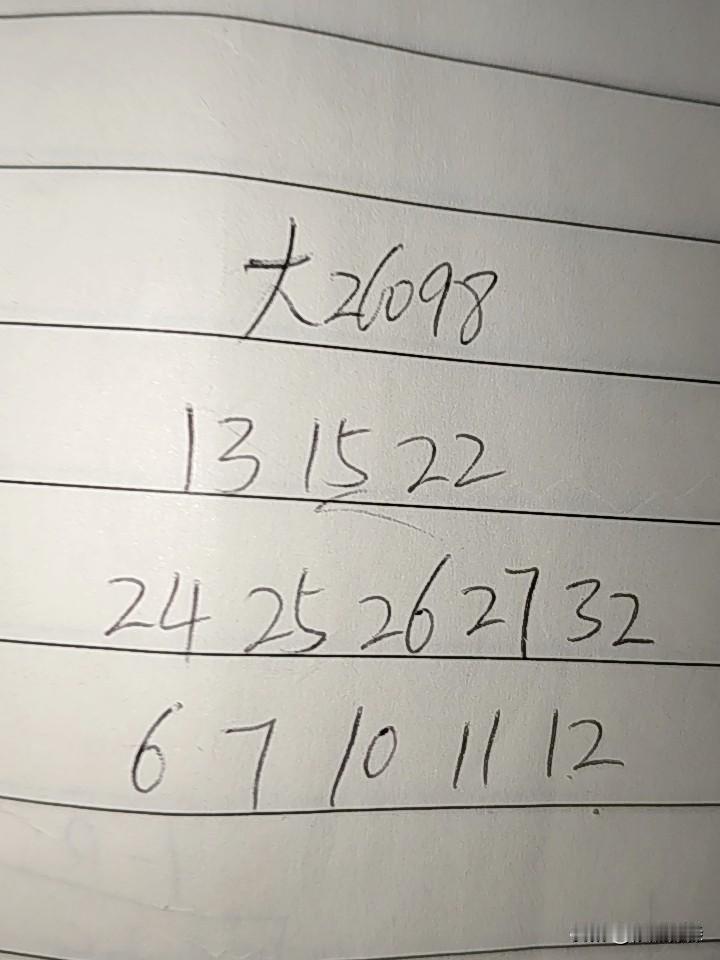 大26098
13 15 22
24 25 26 27 32
6 7 10 11 12